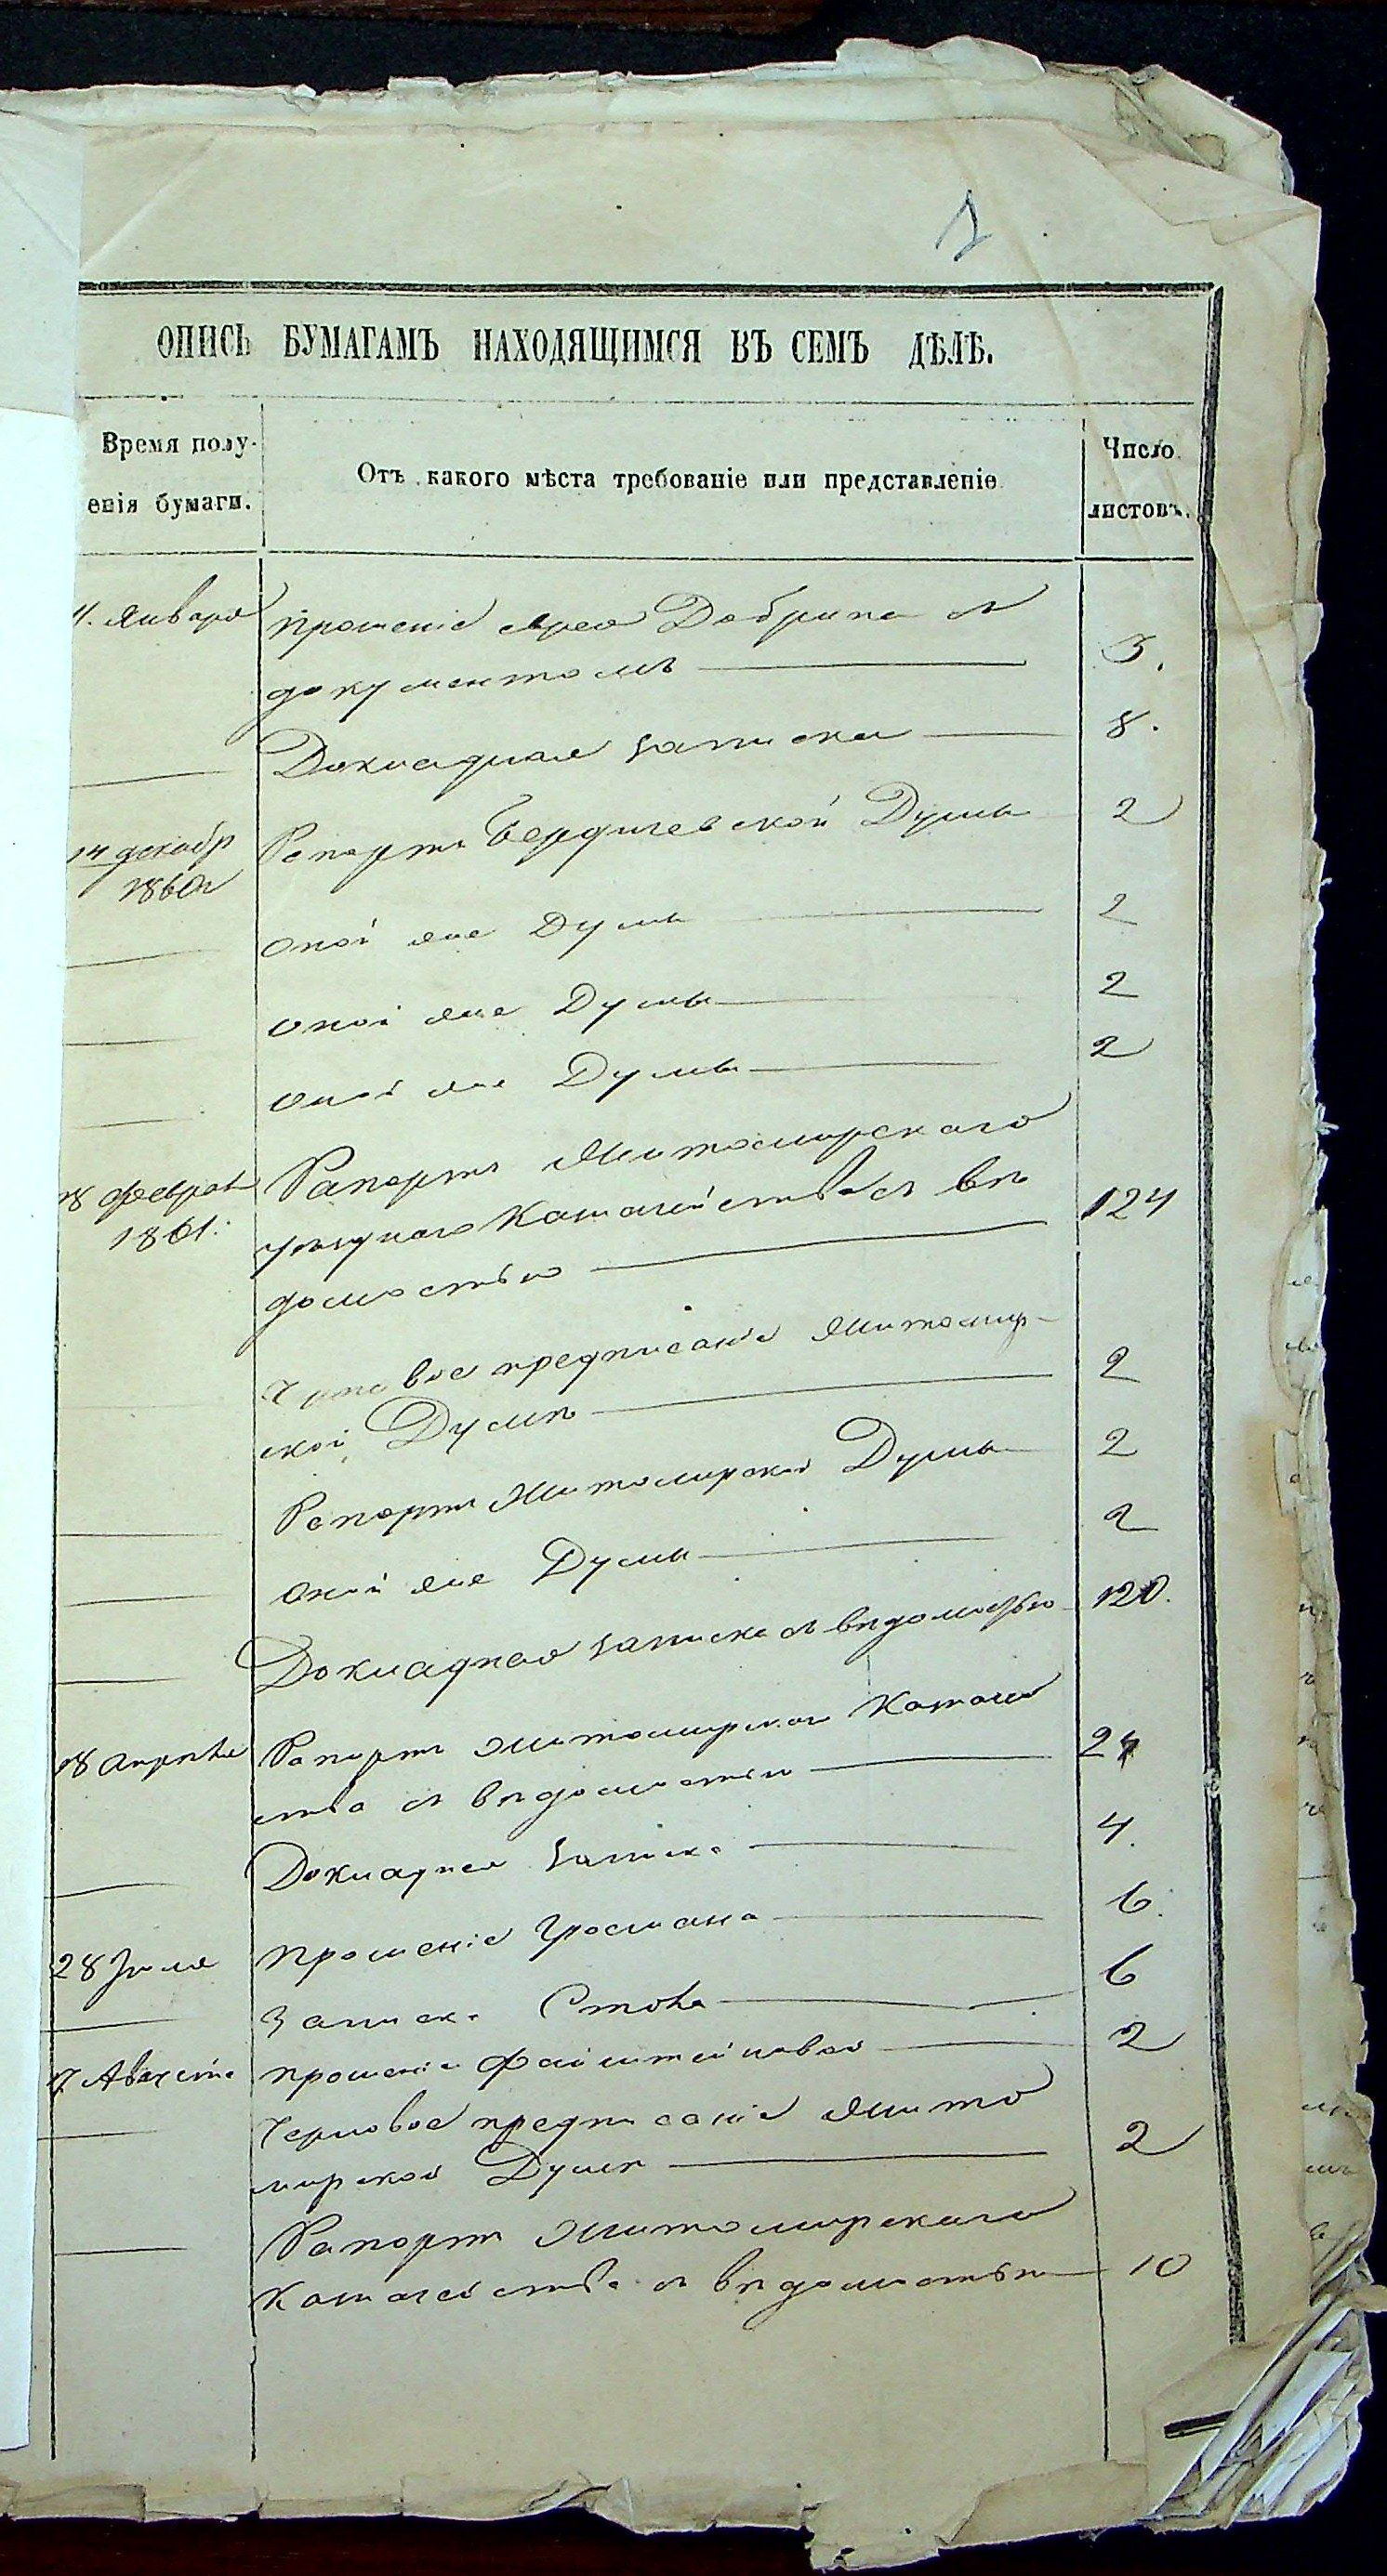 1
ОПИСЬ БУМАГАМЪ НАХОДЯЩИМСЯ ВЪ СЕМЪ ДѢЛѢ.
Время полу-
енія бумаги.
Отъ какого мѣста требованіе или представленіе
Число
листовъ.
11. Января Прошеніе еврея Добрина съ
документомъ 3.
Докладная записка 8.
14 декабр Рапортъ Бердичевской Думы 2
1860г
оной же Думы 2
оной же Думы 2
оной же Думы 2
Рапортъ Житомирскаго
18 февраля уѣзднаго Казначейства съ вѣ 124
1861.
домостью
Черновое предписаніе Житомир-
ской Думѣ 2
Рапортъ Житомирской Думы 2
оной же Думы 2
Докладная записка съ вѣдомостью 120.
18 Апрѣля Рапортъ Житомирскаго Казначей
ства съ вѣдомостью 24
Докладная записка 4.
28 Іюля Прошеніе Гросмана 6.
Записка Стола 6
17 Августа прошеніе Файнштейновой 2
Черновое предписаніе Жито
мирской Думѣ 2
Рапортъ Житомирскаго
Казначейства съ вѣдомостью 10